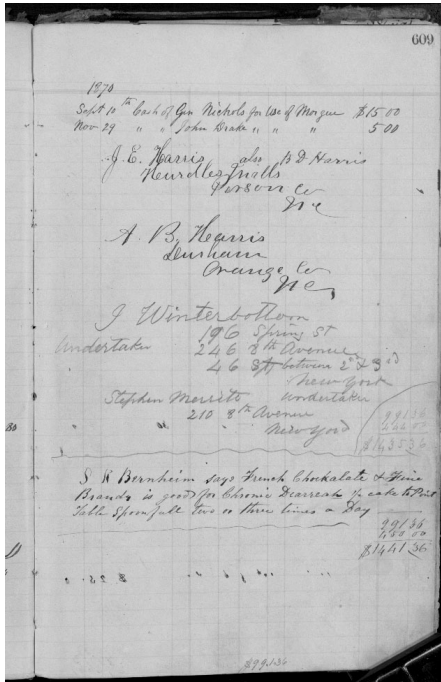 609
1870
Sept 10th Cash of Gen Nichols for Use of Morgue $15 00
Nov 29 " " John Drake " " " 5 00
J. E. Harris also B D Harris
Hurdles Mills
Person Co
N c
A. B. Harris
Durham
Orange Co
N C,
J Winterbottom
196 Spring St
Undertaker 246 8th Avenue
46 St between 2d & 3rd
New York
Stephen Merritt Undertaker
210 8th Avenue
New York
991 36
444 00
$1435 36
S W Bernheim says French Chockalate & Fine
Brandy is good for Chronic Diarreah 1/2 cake to Pint
Table Spoonfull two or three times a Day
991 36
450 00
$1441 36
$991.36